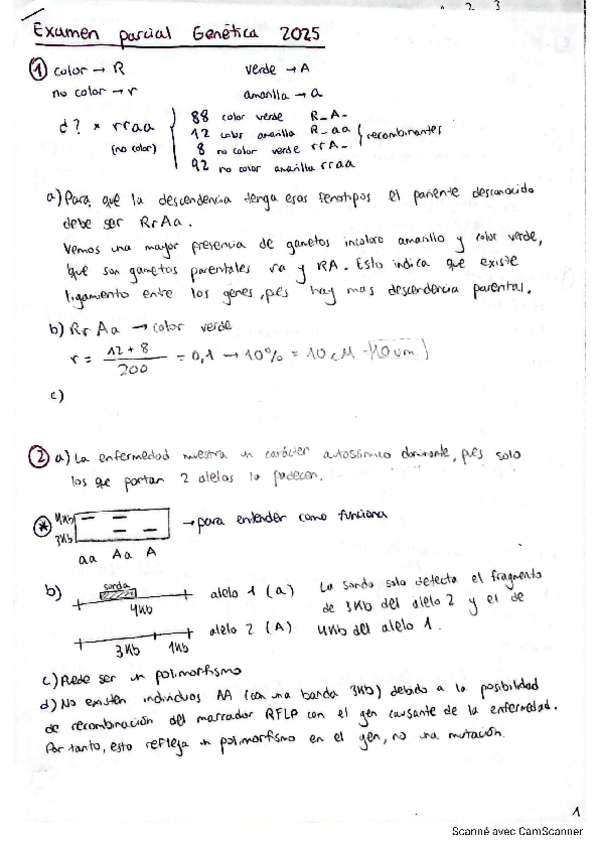 2 3
Examen parcial Genética 2025
① color → R verde → A
no color → r amarilla → a
d? × rraa
(no color)
88 color verde R_A_
12 color amarilla R_aa
8 no color verde rrA_
92 no color amarilla rraa
recombinantes
a) Para que la descendencia tenga esos fenotipos el pariente desconocido
debe ser RrAa.
Vemos una mayor presencia de gametos incoloro amarillo y color verde,
que son gametos parentales ra y RA. Esto indica que existe
ligamiento entre los genes, pues hay mas descendencia parental.
b) RrAa → color verde
r = 12 + 8 / 200 = 0,1 → 10% = 10 cM = 10 um
c)
② a) La enfermedad muestra un carácter autosómico dominante, pues solo
los que portan 2 alelos la padecen.
* 4Kb → para entender como funciona
3Kb
aa Aa A
b) sonda alelo 1 (a) La sonda solo detecta el fragmento
4Kb de 3Kb del alelo 2 y el de
alelo 2 (A) 4Kb del alelo 1.
3Kb 1Kb
c) Puede ser un polimorfismo
d) No existen individuos AA (con una banda 3Kb) debido a la posibilidad
de recombinación del marcador RFLP con el gen causante de la enfermedad.
Por tanto, esto refleja un polimorfismo en el gen, no una mutación.
1
Scanné avec CamScanner